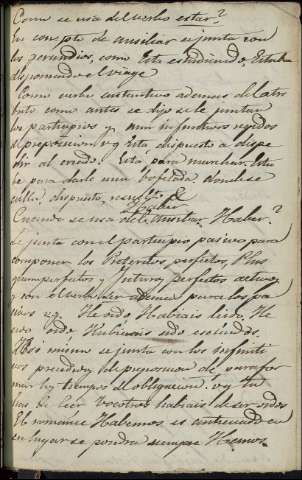 Como se usa del verbo estar?
En concepto de ausiliar se junta con
los gerundios, como Esta estudiando, Estaba
disponiendo el viage
Como verbo sustantivo ademas del atri
buto como antes se dijo se le juntan
los participios y aun infinitivos regidos
de preposicion v.g. Esta dispuesto a despe
dir al criado. Esta para marchar. Esta
ba para darle una bofetada, donde se
dispuesto,
Como se usa del Ausiliar Haber?
Se junta con el participio pasivo para
componer los Preteritos perfectos, Plus
quamperfectos y futuros perfectos activos
y con el para los pa
sivos v.g. He oido Habiais leido. He
sido Hubierais sido
Asi mismo se junta con los infiniti
vos precedidos de preposicion de para for
mar los tiempos de obligacion. v.g. Tu
has de leer Vosotros habiais de ser oidos
El romance Habemos es anticuado en
su lugar se pondra siempre Hemos.